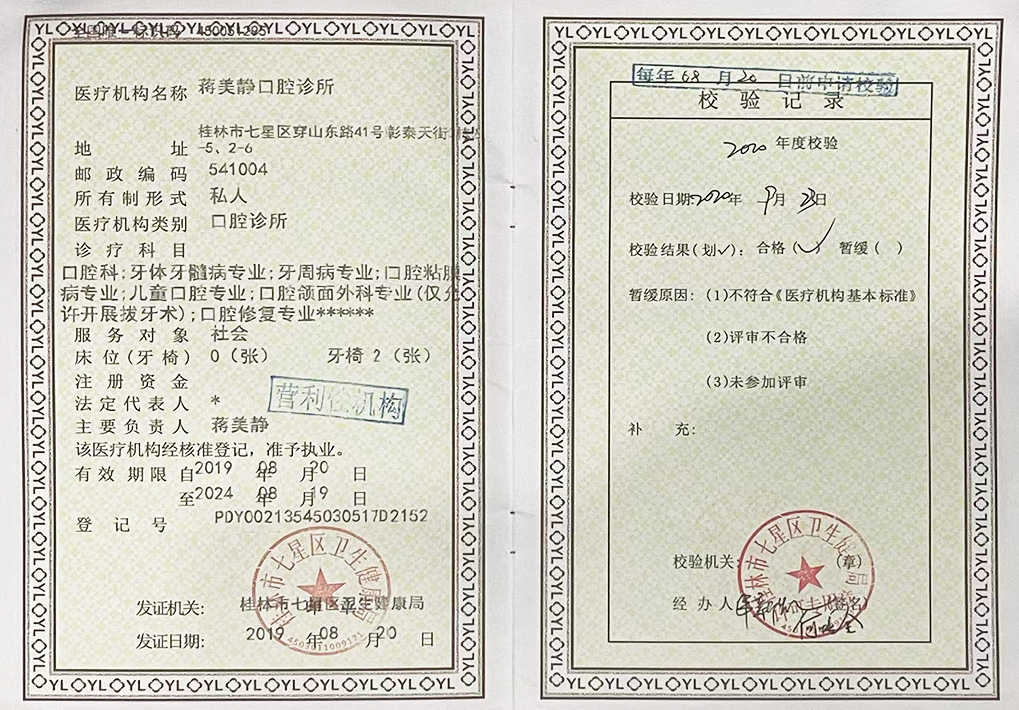 医疗机构名称 蒋美静口腔诊所
桂林市七星区穿山东路41号彰泰天街
地 址 -5、2-6
邮政编码 541004
所有制形式 私人
医疗机构类别 口腔诊所
诊疗科目
口腔科;牙体牙髓病专业;牙周病专业;口腔粘膜
病专业;儿童口腔专业;口腔颌面外科专业(仅允
许开展拔牙术);口腔修复专业******
服务对象 社会
床位(牙椅) 0(张) 牙椅 2(张)
注册资金
营利性机构
法定代表人 *
主要负责人 蒋美静
该医疗机构经核准登记，准予执业。
有效期限自2019年08月20日
至2024年08月19日
登记号 PDY00213545030517D2152
桂林市七星区卫生健康局
发证机关: 桂林市七星区卫生健康局
发证日期: 2019年08月20日
每年 月20日前申请校验
校验记录
2020年度校验
校验日期:2020年9月23日
校验结果(划✓): 合格(✓) 暂缓( )
暂缓原因: (1)不符合《医疗机构基本标准》
(2)评审不合格
(3)未参加评审
补 充:
桂林市七星区卫生健康局
校验机关: (章)
经办人 (签名)